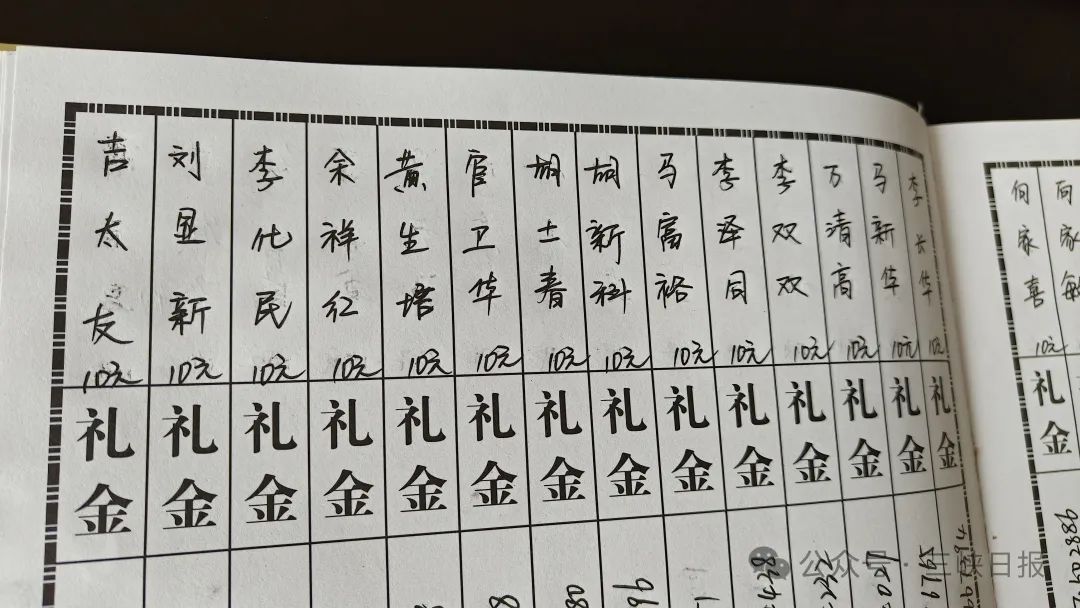 吉太友 10元 礼金
刘显新 10元 礼金
李化民 10元 礼金
余祥红 10元 礼金
黄生培 10元 礼金
官卫华 10元 礼金
胡士春 10元 礼金
胡新科 10元 礼金
马富裕 10元 礼金
李泽同 10元 礼金
李双双 10元 礼金
万清高 10元 礼金
马新华 10元 礼金
李长华 10元 礼金
向家喜 10元 礼金
向家敏
公众号·三峡日报